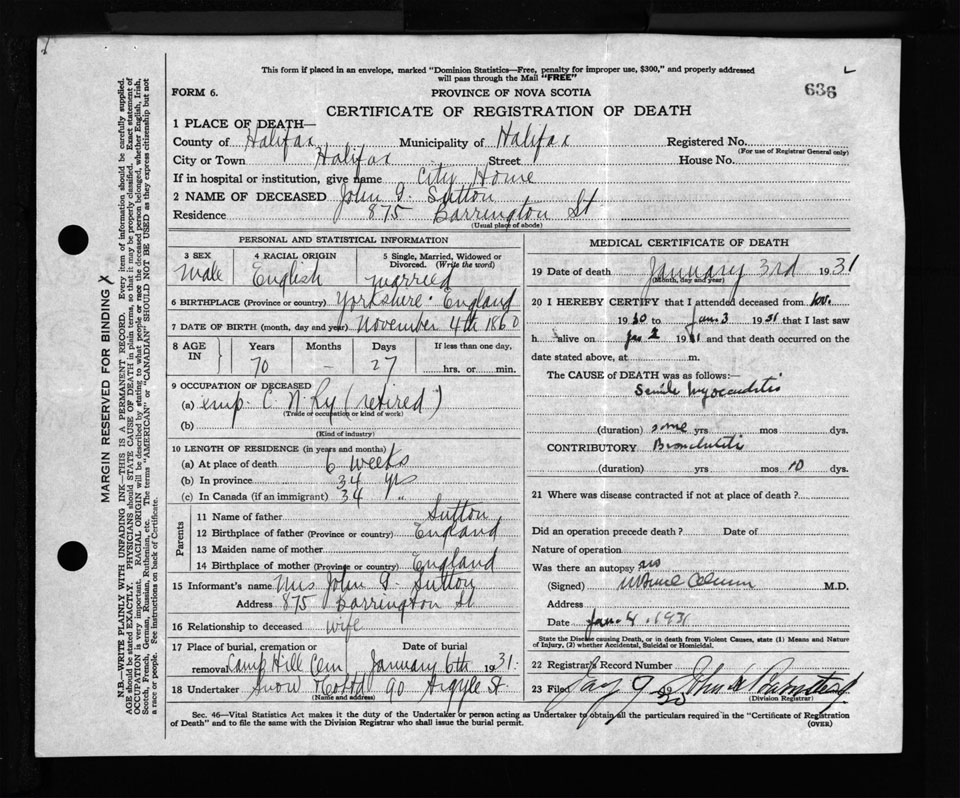 This form if placed in an envelope, marked "Dominion Statistics—Free, penalty for improper use, $300," and properly addressed
will pass through the Mail "FREE"
FORM 6.
PROVINCE OF NOVA SCOTIA
636
CERTIFICATE OF REGISTRATION OF DEATH
1 PLACE OF DEATH—
County of Halifax Municipality of Halifax Registered No.
(For use of Registrar General only)
City or Town Halifax Street House No.
If in hospital or institution, give name City Home
2 NAME OF DECEASED John G. Sutton
Residence 875 Barrington St
(Usual place of abode)
PERSONAL AND STATISTICAL INFORMATION
3 SEX Male
4 RACIAL ORIGIN English
5 Single, Married, Widowed or Divorced. (Write the word) married
6 BIRTHPLACE (Province or country) Yorkshire. England
7 DATE OF BIRTH (month, day and year) November 4th 1860
8 AGE IN Years Months Days If less than one day,
70 – 27 hrs. or min.
9 OCCUPATION OF DECEASED
(a) emp. C. N. Ry (retired)
(Trade or occupation or kind of work)
(b)
(Kind of industry)
10 LENGTH OF RESIDENCE (in years and months)
(a) At place of death 6 weeks
(b) In province 34 yrs
(c) In Canada (if an immigrant) 34 "
Parents
11 Name of father Sutton
12 Birthplace of father (Province or country) England
13 Maiden name of mother
14 Birthplace of mother (Province or country) England
15 Informant's name Mrs John G. Sutton
Address 875 Barrington St
16 Relationship to deceased wife
17 Place of burial, cremation or removal Camp Hill Cem
Date of burial January 6th 1931.
18 Undertaker Snow 90 Argyle St
(Name and address)
MEDICAL CERTIFICATE OF DEATH
19 Date of death January 3rd 1931
(Month, day and year)
20 I HEREBY CERTIFY that I attended deceased from Nov.
1930 to Jan. 3 1931 that I last saw
h alive on Jan 2 1931 and that death occurred on the
date stated above, at m.
The CAUSE of DEATH was as follows:—
Senile Myocarditis
(duration) some yrs mos dys.
CONTRIBUTORY Bronchitis
(duration) yrs mos 10 dys.
21 Where was disease contracted if not at place of death?
Did an operation precede death? Date of
Nature of operation
Was there an autopsy no
(Signed) M.D.
Address
Date Jan. 4. 1931
State the Disease causing Death, or in death from Violent Causes, state (1) Means and Nature
of Injury, (2) whether Accidental, Suicidal or Homicidal.
22 Registrar's Record Number
23 Filed Jany 9
(Division Registrar)
Sec. 46—Vital Statistics Act makes it the duty of the Undertaker or person acting as Undertaker to obtain all the particulars required in the "Certificate of Registration
of Death" and to file the same with the Division Registrar who shall issue the burial permit. (OVER)
MARGIN RESERVED FOR BINDING
N.B.—WRITE PLAINLY WITH UNFADING INK—THIS IS A PERMANENT RECORD. Every item of information should be carefully supplied.
AGE should be stated EXACTLY. PHYSICIANS should STATE CAUSE OF DEATH in plain terms, so that it may be properly classified. Exact statement of
OCCUPATION is very important. RACIAL ORIGIN will be described by stating to what people or race the deceased person belonged, whether English, Irish,
Scotch, French, German, Russian, Ruthenian, etc. The terms "AMERICAN" or "CANADIAN" SHOULD NOT BE USED as they express citizenship but not
a race or people. See instructions on back of Certificate.